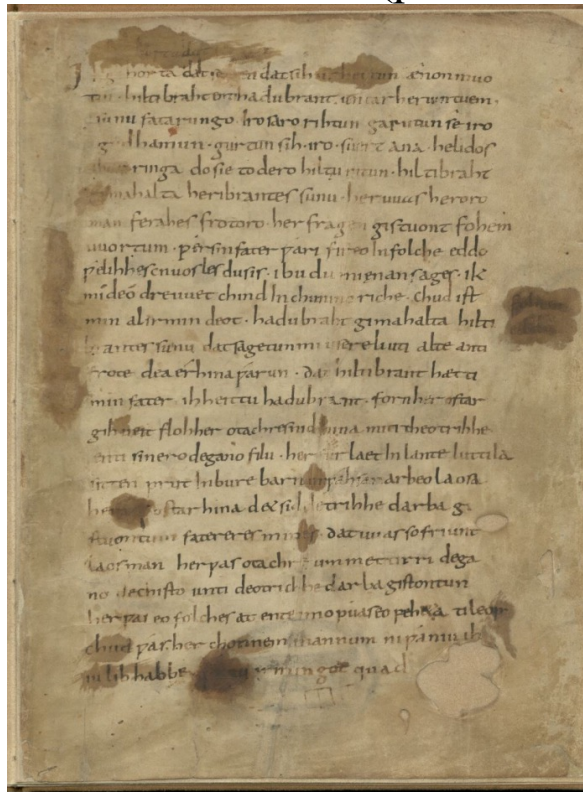 gihorta dat dat sih ænon muo
tin · hiltibraht enti hadubrant · untar heriun tuem ·
sunu fatarungo · iro saro rihtun garutun se iro
gudhamun · gurtun sih · iro · suert ana · helidos
ringa do sie to dero hiltu ritun · hiltibraht
gimahalta heribrantes sunu · her uuas heroro
man ferahes frotoro · her fragen gistuont fohem
uuortum · ƿer sin fater ƿari fireo In folche eddo
ƿelihhes cnuosles du sis · ibu du mi enan sages · ik
mi deo dre uuet chind In chunincriche · chud ist
min al irmin deot · hadubraht gimahalta hilti
brantes sunu dat sagetun mi usere liuti alte anti
frote dea erhina ƿarun · dat hiltibrant hætti
min fater · ih heittu hadubrant · forn her ostar
gihueit floh her otachres nid hina miti theotrihhe
enti sinero degano filu · her furlaet In lante luttila
sitten prut In bure barn unƿahsan arbeo laosa
ostar hina det sid detrihhe darba gi
stuontum fatereres mines · dat uuas so friunt
laos man her ƿas otachre ummett irri dega
no dechisto unti deotrichhe darba gistontun
her ƿas eo folches at ente imo ƿuas eo feheta ti leop
chud ƿas her chonnem mannum ni ƿaniu ih
iu lib habbe irmingot quad